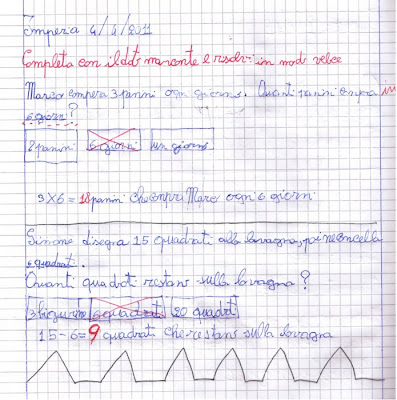 Imperia 4/4/2011
Completa con il dato mancante e risolvi in modo veloce
Marco compera 3 panini ogni giorno. Quanti panini compra in
6 giorni?
8 panini 6 giorni un giorno
3X6 = 18 panini che compri Marco ogni 6 giorni
Simone disegna 15 quadrati alla lavagna, poi ne cancella
6 quadrati.
Quanti quadrati restano sulla lavagna?
3 figurine 6 quadrati 20 quadrati
15-6=9 quadrati che restano sulla lavagna